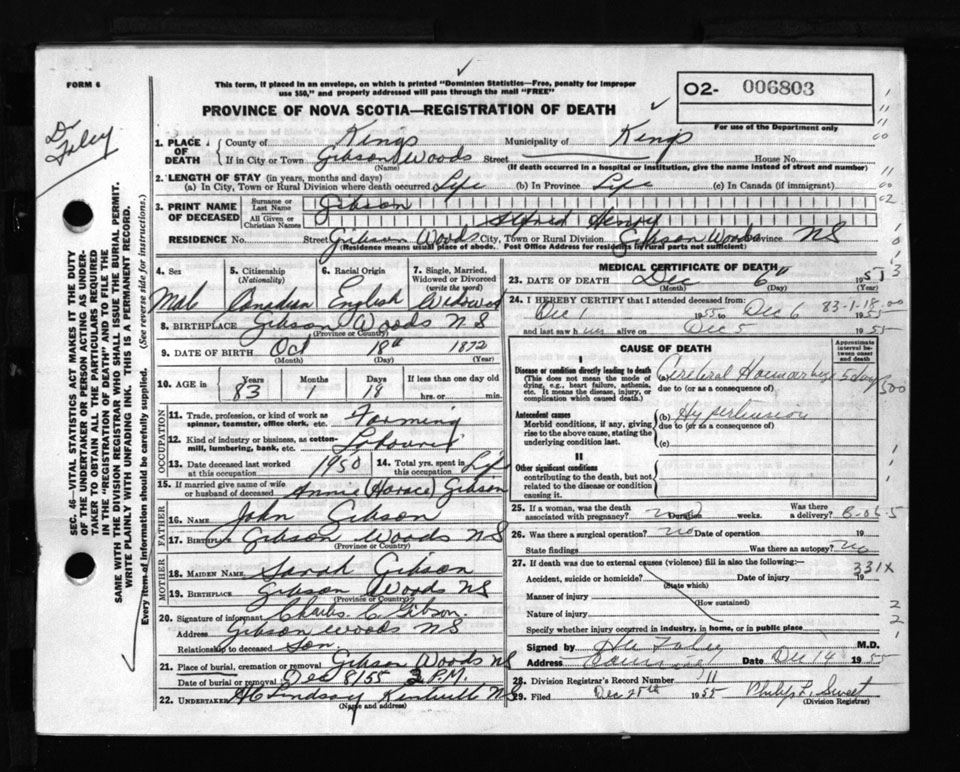 FORM 6
This form, if placed in an envelope, on which is printed "Dominion Statistics—Free, penalty for improper
use $50," and properly addressed will pass through the mail "FREE"
PROVINCE OF NOVA SCOTIA—REGISTRATION OF DEATH
O2- 006803
For use of the Department only
Dr Foley
SEC. 46—VITAL STATISTICS ACT MAKES IT THE DUTY
OF THE UNDERTAKER OR PERSON ACTING AS UNDER-
TAKER TO OBTAIN ALL THE PARTICULARS REQUIRED
IN THE "REGISTRATION OF DEATH" AND TO FILE THE
SAME WITH THE DIVISION REGISTRAR WHO SHALL ISSUE THE BURIAL PERMIT.
WRITE PLAINLY WITH UNFADING INK. THIS IS A PERMANENT RECORD.
Every item of information should be carefully supplied. (See reverse side for instructions.)
1. PLACE OF DEATH County of Kings Municipality of Kings
If in City or Town Gibson Woods Street House No.
(Name) (If death occurred in a hospital or institution, give the name instead of street and number)
2. LENGTH OF STAY (in years, months and days)
(a) In City, Town or Rural Division where death occurred Life (b) In Province Life (c) In Canada (if immigrant)
3. PRINT NAME OF DECEASED Surname or Last Name Gibson
All Given or Christian Names Alfred Henry
RESIDENCE No. Street Gibson Woods City, Town or Rural Division Gibson Woods Province NS
(Residence means usual place of abode. Post Office Address for residents of rural parts not sufficient)
4. Sex 5. Citizenship (Nationality) 6. Racial Origin 7. Single, Married, Widowed or Divorced (write the word)
Male Canadian English Widowed
8. BIRTHPLACE Gibson Woods NS
(Province or Country)
9. DATE OF BIRTH Oct 18th 1872
(Month) (Day) (Year)
10. AGE in Years Months Days If less than one day old
83 1 18 hrs. or min.
OCCUPATION
11. Trade, profession, or kind of work as spinner, teamster, office clerk, etc. Farming
12. Kind of industry or business, as cotton-mill, lumbering, bank, etc. Labourer
13. Date deceased last worked at this occupation 1950 14. Total yrs. spent in this occupation Life
15. If married give name of wife or husband of deceased Annie (Horace) Gibson
FATHER
16. NAME John Gibson
17. BIRTHPLACE Gibson Woods NS
(Province or Country)
MOTHER
18. MAIDEN NAME Sarah Gibson
19. BIRTHPLACE Gibson Woods NS
(Province or Country)
20. Signature of informant Charles C. Gibson.
Address Gibson Woods NS
Relationship to deceased Son
21. Place of burial, cremation or removal Gibson Woods NS
Date of burial or removal Dec 8/55 2 P.M.
22. UNDERTAKER H C Lindsay Kentville NS
(Name and address)
MEDICAL CERTIFICATE OF DEATH
23. DATE OF DEATH Dec 6th 1955
(Month) (Day) (Year)
83-1-18.00
24. I HEREBY CERTIFY that I attended deceased from:
Dec 1 1955 to Dec 6 1955
and last saw him alive on Dec 5 1955
CAUSE OF DEATH
Approximate interval between onset and death
I
Disease or condition directly leading to death
(This does not mean the mode of dying, e.g., heart failure, asthenia, etc. It means the disease, injury, or complication which caused death.)
Cerebral Haemorrhage 5 days
due to (or as a consequence of)
Antecedent causes
Morbid conditions, if any, giving rise to the above cause, stating the underlying condition last.
(b) Hypertension
due to (or as a consequence of)
(c)
II
Other significant conditions
contributing to the death, but not related to the disease or condition causing it.
25. If a woman, was the death associated with pregnancy? Duration weeks. Was there a delivery? B-06.5
26. Was there a surgical operation? no Date of operation 19
State findings Was there an autopsy? no
27. If death was due to external causes (violence) fill in also the following:— 331X
Accident, suicide or homicide? Date of injury 19
(State which)
Manner of injury
(How sustained)
Nature of injury
Specify whether injury occurred in industry, in home, or in public place
Signed by M.D.
Address Canning Date Dec 14 1955
28. Division Registrar's Record Number 11
29. Filed Dec 28th 1955 Philip L. Sweet
(Division Registrar)